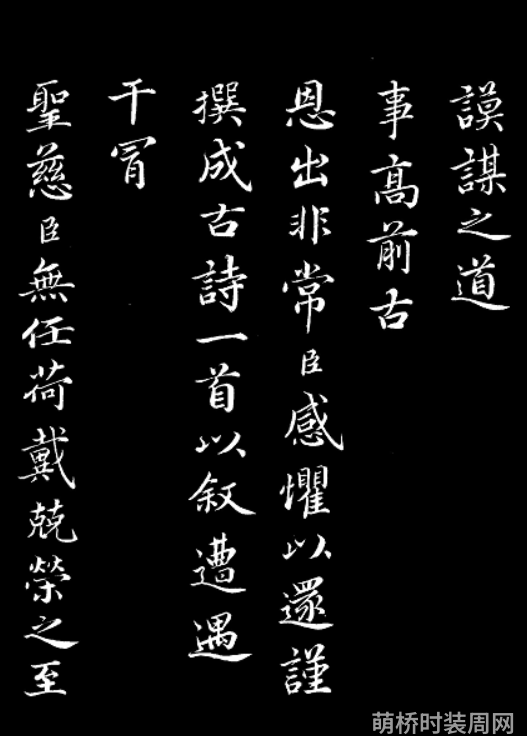 謨謀之道
事高前古
恩出非常臣感懼以還謹
撰成古詩一首以叙遭遇
干冒
聖慈臣無任荷戴兢榮之至
萌桥时装周网